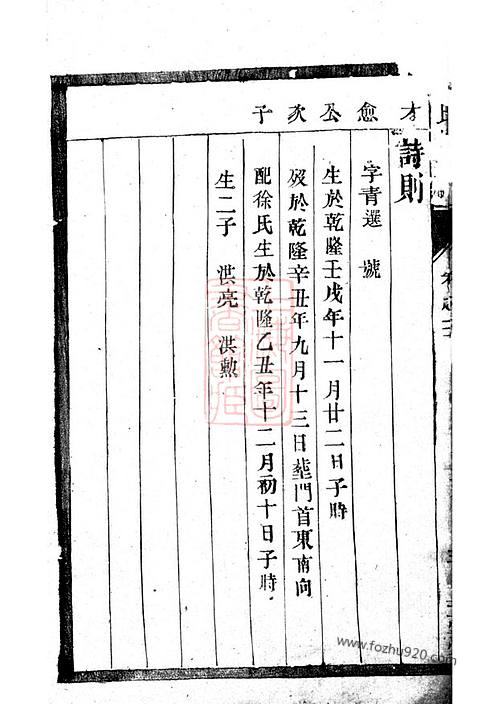 才愈公次子
詩則
字青選 號
生於乾隆壬戌年十一月廿二日子時
歿於乾隆辛丑年九月十三日塟門首東南向
配徐氏生於乾隆乙丑年十二月初十日子時
生二子 洪亮 洪勲
www.fozhu920.com